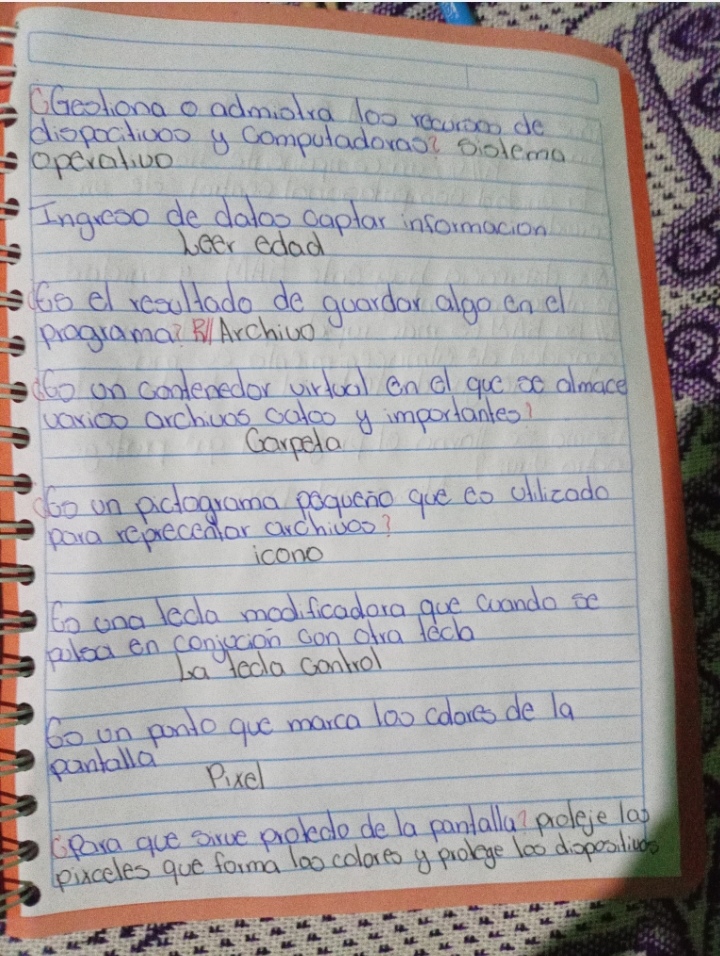 ¿Gestiona o admistra los recursos de
dispocitivos y Computadoras? Sistema
Operativo
Ingreso de datos captar informacion
Leer edad
¿Es el resultado de guardar algo en el
programa? R// Archivo
¿Es un contenedor virtual en el que se almace
varios archivos datos y importantes?
Carpeta
¿Es un pictograma pequeño que es utilizado
para reprecentar archivos?
icono
Es una tecla modificadora que cuando se
pulsa en conjución con otra tecla
La tecla control
Es un punto que marca los colores de la
pantalla
Pixel
¿Para que sirve protecto de la pantalla? proteje las
pixceles que forma los colores y protege los dispositivos